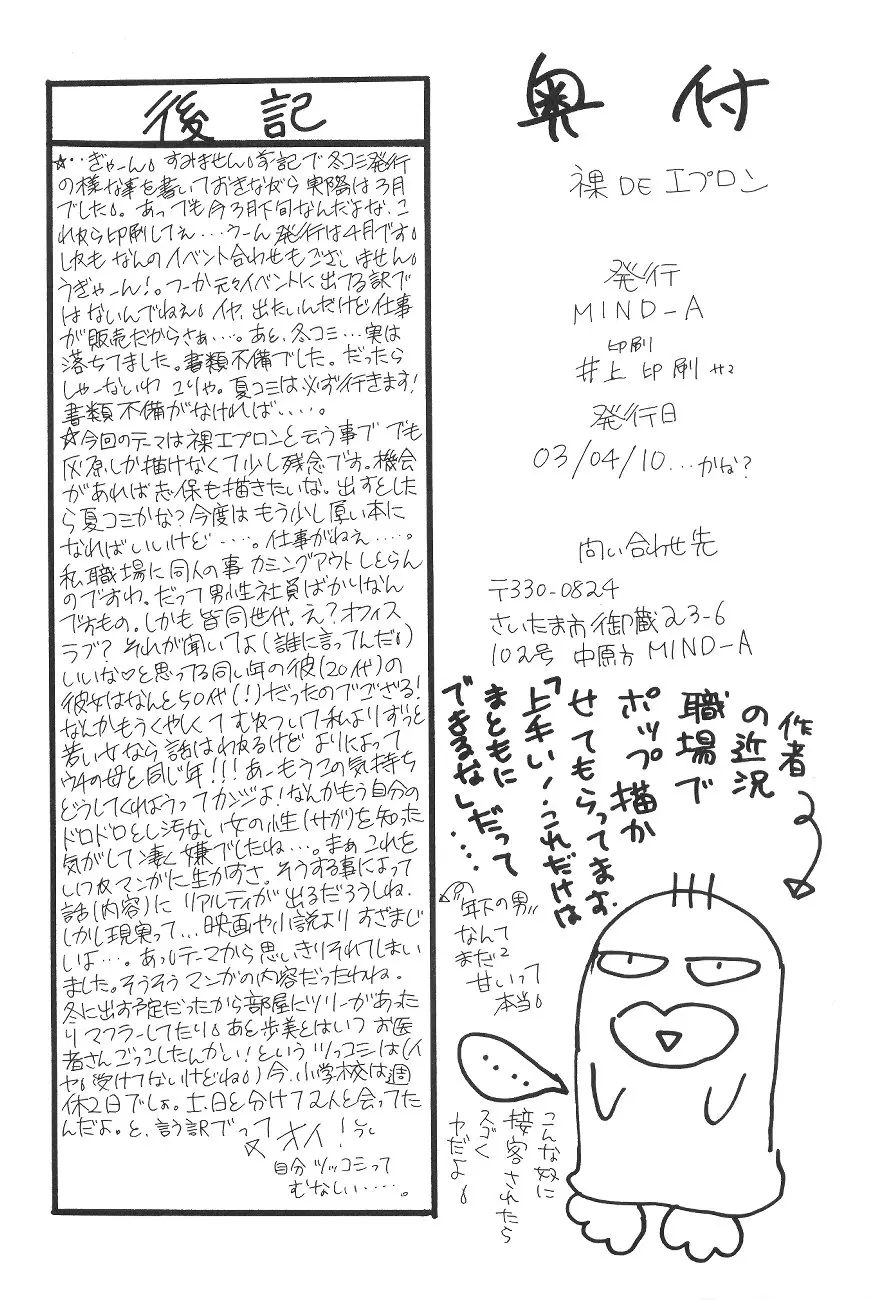 後記
☆‥ぎゃーん。すみません。前記で冬コミ発行
の様な事を書いておきながら実際は3月
でした。あっでも今3月下旬なんだよな、こ
れから印刷してぇ…うーん発行は4月です。
しかもなんのイベント合わせもございません。
うぎゃーん!。つーか元々イベントに出てる訳で
はないんでねぇ。イヤ、出たいんだけど仕事
が販売だからさぁ…。あと、冬コミ…実は
落ちてました。書類不備でした。だったら
しゃーないわ こりゃ。夏コミは必ず行きます!
書類不備がなければ‥‥。
☆今回のテーマは裸エプロンと云う事で でも
灰原しか描けなくて少し残念です。機会
があれば志保も描きたいな。出すとした
ら夏コミかな?今度はもう少し厚い本に
なればいいけど‥‥。仕事がねぇ‥‥。
私、職場に同人の事カミングアウトしとらん
のですわ。だって男性社員ばかりなん
ですもの。しかも皆同世代。え?オフィス
ラブ?それが聞いてよ(誰に言ってんだ)
いいな♡と思ってる同い年の彼(20代)の
彼女はなんと50代(!)だったのでござる!
なんかもうくやしくてむねついて私よりずっと
若い女なら話はわかるけどよりによって
ウチの母と同じ年!!!あーもうこの気持ち
どうしてくれようってカンジよ!なんかもう自分の
ドロドロとし汚ない女の性(サガ)を知った
気がして凄く嫌でしたね…。まぁこれを
いつかマンガに生かすさ。そうする事によって
話(内容)にリアルティが出るだろうしね.
しかし現実って…映画や小説よりすざまじ
いよ…。あっテーマから思いきりそれてしまい
ました。そうそうマンガの内容だったわね.
冬に出す予定だったから部屋にツリーがあった
りマフラーしてたり。あと歩美とはいつお医
者さんごっこしたんかい!というツッコミは(イ
ヤ。受けてないけどね。)今、小学校は週
休2日でしょ。土、日と分けて2人と会ってた
んだよ。と、言う訳でって
オイ!
自分ツッコミって
むなしい‥‥。
奥付
裸DEエプロン
発行
MIND-A
印刷
井上印刷 サマ
発行日
03/04/10…かな?
問い合わせ先
〒330-0824
さいたま市御蔵23-6
102号 中原方 MIND-A
作者
の近況
職場で
ポップ描か
せてもらってます.
「上手い!これだけは
まともに
できるな」だって
‥‥
年下の男
なんて
まだ2
甘いって
本当。
・・・・
こんな奴に
接客されたら
スゴく
ヤだよ。